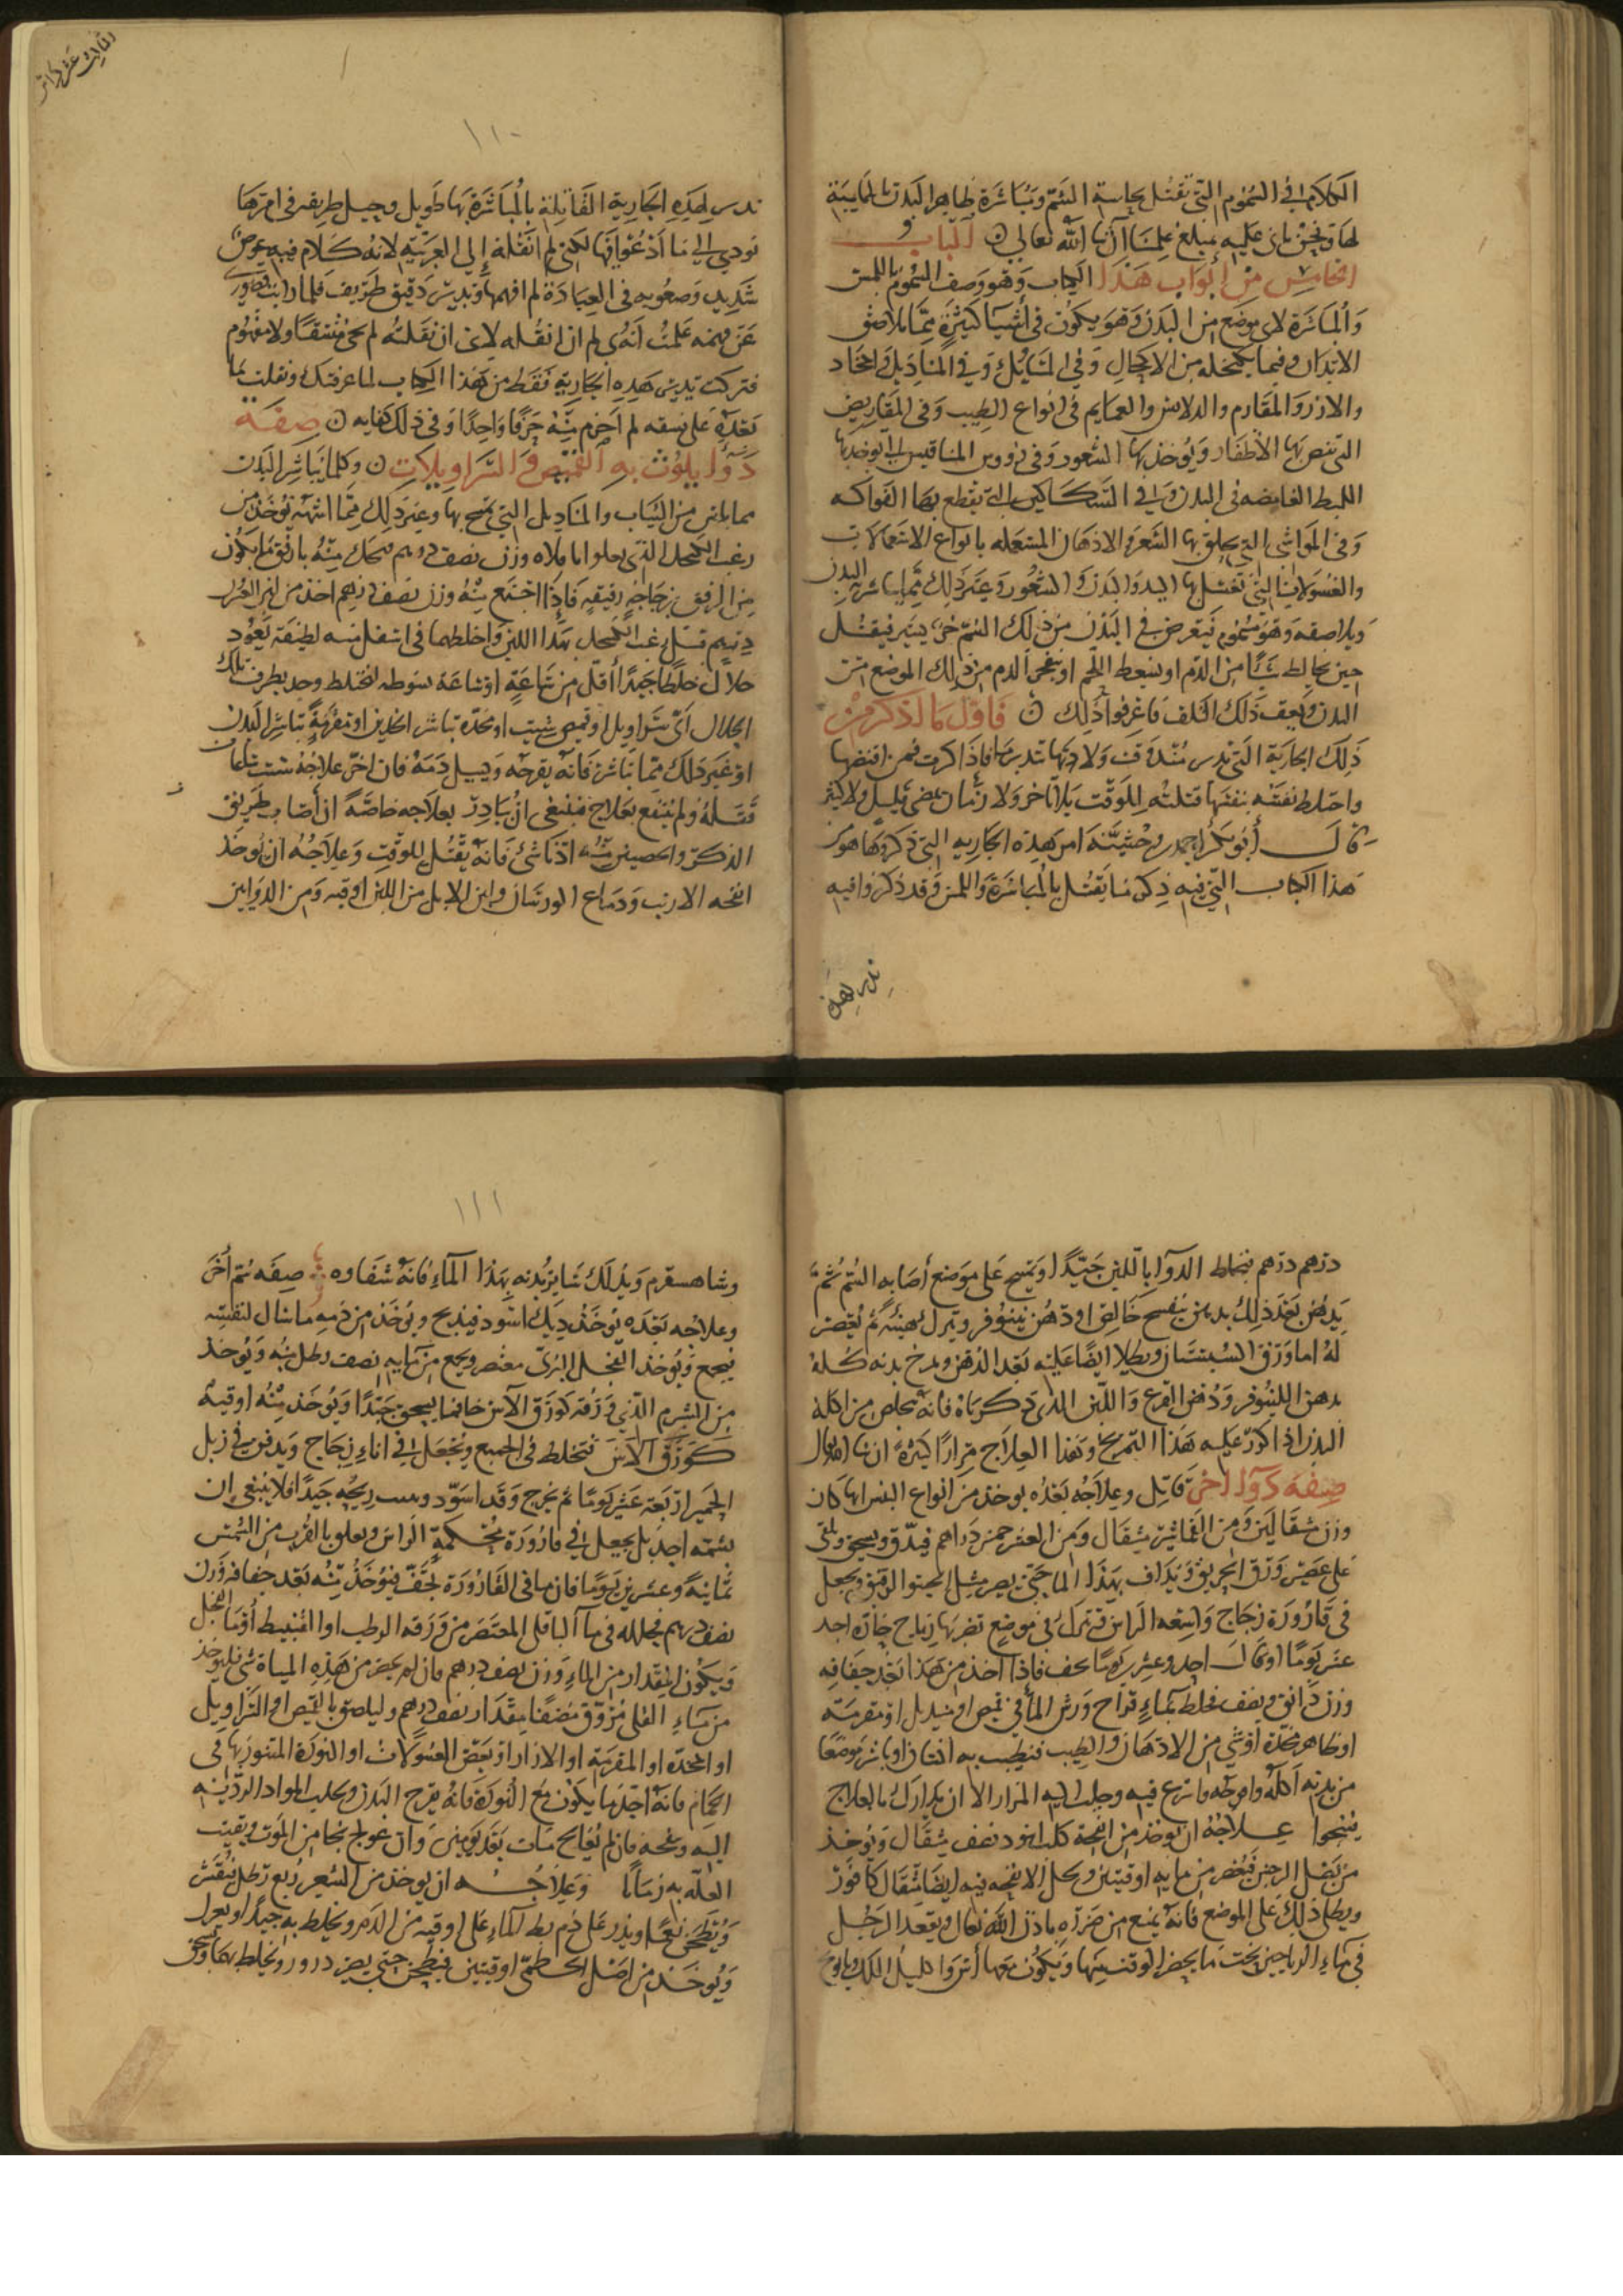 الكلام في السموم التي تقتل بحاسة الشم ومباشرة ظاهر البدن بالمماسة
لها ونحن بان عليه مبلغ علمنا ان شا الله تعالى ن الباب
الخامس من أبواب هذا الكتاب وهو وصف السموم باللمس
والمباشرة لاى موضع من البدن وهو يكون في أشيا كثيرة مما يلاصق
الابدان وفيما يكتحل به من الاكحال وفي المناديل والمخاد
والازر والمقارم والدلاس والعمايم في انواع الطيب وفي المقاريض
التي تقص بها الأظفار ويؤخذ بها الشعور وفي رووس المناقيش التي يوخذ بها
الغامضه في البدن وفي السكاكين التي يقطع بها الفواكه
وفي المواشي التي يحلق بها الشعر والادهان المستعمله بانواع الاستعمالات
والغسولات التي تغسل بها اليد والبدن والشعور وغير ذلك مما يباشر به البدن
ويلاصقه وهو مسموم فيعرض في البدن من ذلك السم فيقتل
حين يخالط شيئا من الدم او يسقط اللحم او ينفجر الدم من ذلك الموضع من
البدن ويعقب ذلك التلف فاعرفوا ذلك ن فاول ما نذكر من
ذلك الجارية التي تدبر منذ وقت ولادتها فاذا كبرت فمن افتضها
واختلط نفسه بنفسها قتلته للوقت بلا تاخر ولا زمان يمضي قليل ولا كثير
قال أبو بكر احمد بن وحشية امر هذه الجاريه التي ذكروها هو في
هذا الكتاب الذي فيه ذكر ما يقتل بالمباشرة واللمس وقد ذكروا فيه
تدبير هذه
ثالث عشر كراس
١١٠
تدبير لهذه الجارية القاتلة بالمباشرة بها طويل وحيل طريفه في امرها
تودي الي ما ادعوا فيها لكني لم انقله إلى العربية لانه كلام فيه عوص
شديد وصعوبه في العبارة لم افهمها وتدبير دقيق طريف فلما رايت قصوري
عن فهمه علمت أنه لم ان انقله لاني ان نقلته لم يجي متسقا ولا مفهوم
فتركت تدبير هذه الجارية فقط من هذا الكتاب لما عرفتك ونقلت ما
بعده على نسقه لم اخرم منه حرفا واحدا وفي ذلك كفايه ن صفه
دوا يلوث به القميص والسراويلات ن وكلما يباشر البدن
مما يلبس من الثياب والمناديل التي يمسح بها وغير ذلك مما اشبهه توخذ من
من الرفق بزجاجه رقيقه فاذا اجتمع منه وزن نصف درهم اخذ من لبن العشر
خلال خلطا جيدا أقل من ساعة اوساعة متوسطه ليختلط وخذ بطرف تلك
الخلال اى سراويل او قميص شيت او مخدة تباشر الخدين او مقرمة تباشر البدن
او غير ذلك مما تباشر فانه يقرحه ويسيل دمه فان اخر علاجه ست ساعات
قتله ولم ينتفع بعلاج فينبغي ان يبادر بعلاجه خاصة ان أصاب طريق
الذكر والخصيتين منه ادنا شئ فانه يقتل للوقت وعلاجه ان يوخذ
انفحه الارنب ودماغ الورشان ولبن الابل من اللبن اوقيه ومن الدوايين
درهم درهم يخلط الدوا باللبن جيدا ويمسح على موضع أصابه السم ثم
يدهن بعد ذلك بدهن بنفسج خالص او دهن نينوفر وتترك هنية ثم يعصر
له اما ورق السبستان ويطلا ايضا عليه بعد الدهن ويمرخ بدنه كله
بدهن اللينوفر ودهن القرع واللبن الذى ذكرناه فانه يخلص من اكله
البدن اذا كرر عليه هذا التمريخ وهذا العلاج مرارا كثيرة ان شا الله تعالى
صفة دوا اخر قاتل وعلاجه بعده يوخذ من انواع اليبس ايها كان
وزن مثقالين ومن مثقال ومن العشر خمس دراهم فيدق ويسحق ويلقى
على عصير ورق الحريق ويداف بهذا الما حتى يصير مثل الحسو الرقيق ويجعل
في قارورة زجاج واسعه الراس فتترك في موضع تضربها رياح حارة احد
عشر يوما او قال احد وعشرين يوما تجف فاذا اخذ من هذا بعد جفافه
وزن دانق ونصف فخلط بماء قراح ورش الما في قميص او منديل او مقرمة
او ظاهر مخدة أو شي من الادهان والطيب فتطيب به انسان او باشر موضعا
من بدنه أكله واقرحه واسرع فيه وجلب اليه المرار الا ان يدارك بالعلاج
ينجوا علاجه ان يوخذ من انفحة كلب اسود نصف مثقال ويوخذ
من بصل النرجس فيعصر من مايه اوقيتين ويحل الانفحه فيه ايضا مثقال كافور
ويطلى ذلك على الموضع فانه يمنع من ضرره باذن الله تعالى ويقعد الرجل
في ماء الرياحين بحسب ما يحضر الوقت منها ويكون معها أس واكليل الملك وبابونج
١١١
وشاهسفرم ويدلك سايز بدنه بهذا الماء فانه شفاوه ن صفة سم أخر
وعلاجه بعده يوخذ ديك اسود فيذبح ويوخذ من دمه ما سال لنفسه
فيجمع ويوخذ الفجل البري فعصر ويجمع من مايه نصف رطل منه ويوخذ
من الشبرم الذي ورقه كورق الآس جافا يسحق جيدا ويوخذ منه اوقية
كورق الآس فتخلط في الجميع ويجعل في اناء زجاج ويدفن في زبل
الحمير اربعة عشر يوما ثم يخرج وقد اسود ريحه جيدا فلا ينبغي ان
يشمه احد بل يجعل في قارورة محكمة الراس ويعلق بالقرب من الشمس
ثمانية وعشرين يوما فان ما في القارورة يجف فيوخذ منه بعد جفافه وزن
نصف درهم فيحلله في ماء الباقلى المعتصر من ورقه الرطب او القنبيط أو ما الفجل
ويكون المقدار من الماء وزن نصف درهم فان لم يحضر من هذه المياة شي فليوخذ
من ماء القلى مروق مصفا مقدار نصف درهم وليلصق بالقميص او السراويل
او المخده او المقرمة او الازار او بعض الغسولات او النورة المتنور بها في
الحمام فانه اجود ما يكون مع النورة فانه يقرح البدن ويجلب المواد الرديه
اليه فان لم يعالج مات بعد يومين وان عولج نجا من الموت وبقيت
العلة به زمانا وعلاجه ان يوخذ من الشعير ربع رطل فيقشر
ويطحن نعما ويذر على دم بط الماء على اوقيه من الدم ويخلط به جيدا
ويوخذ من اصل الخطمي اوقيتين فيطحن حتى يصير ذرور ويخلط بهما